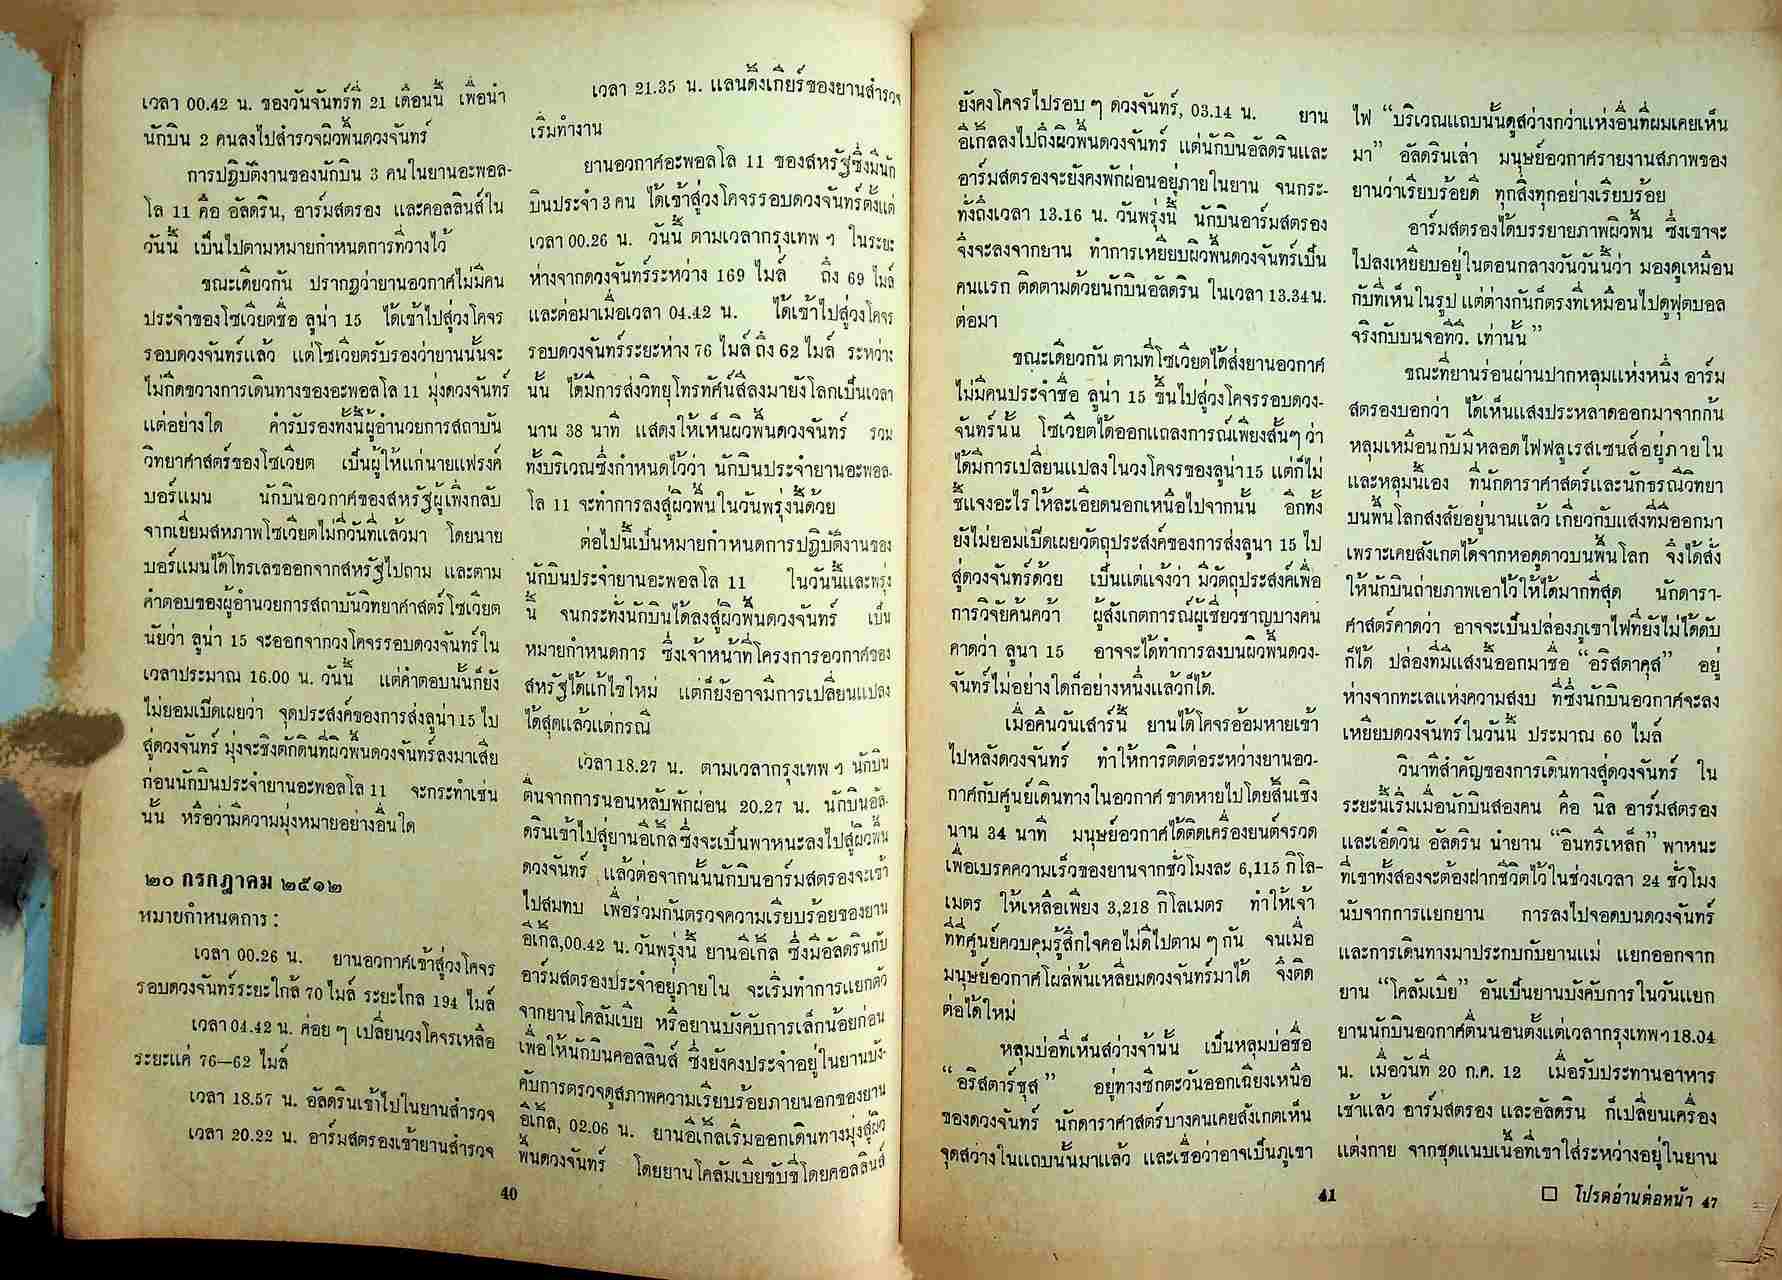 เวลา 00.42 น. ของวันจันทร์ที่ 21 เดือนนี้ เพื่อนำ
นักบิน 2 คนลงไปสำรวจผิวพื้นดวงจันทร์
การปฏิบัติงานของนักบิน 3 คนในยานอะพอล-
โล 11 คือ อัลดริน, อาร์มสตรอง และคอลลินส์ใน
วันนี้ เป็นไปตามหมายกำหนดการที่วางไว้
ขณะเดียวกัน ปรากฏว่ายานอวกาศไม่มีคน
ประจำของโซเวียตชื่อ ลูน่า 15 ได้เข้าไปสู่วงโคจร
รอบดวงจันทร์แล้ว แต่โซเวียตรับรองว่ายานนั้นจะ
ไม่กีดขวางการเดินทางของอะพอลโล 11 มุ่งดวงจันทร์
แต่อย่างใด คำรับรองทั้งนี้ผู้อำนวยการสถาบัน
วิทยาศาสตร์ของโซเวียต เป็นผู้ให้แก่นายแฟรงค์
บอร์แมน นักบินอวกาศของสหรัฐผู้เพิ่งกลับ
จากเยี่ยมสหภาพโซเวียตไม่กี่วันที่แล้วมา โดยนาย
บอร์แมนได้โทรเลขออกจากสหรัฐไปถาม และตาม
คำตอบของผู้อำนวยการสถาบันวิทยาศาสตร์โซเวียต
นัยว่า ลูน่า 15 จะออกจากวงโคจรรอบดวงจันทร์ใน
เวลาประมาณ 16.00 น. วันนี้ แต่คำตอบนั้นก็ยัง
ไม่ยอมเปิดเผยว่า จุดประสงค์ของการส่งลูน่า 15 ไป
สู่ดวงจันทร์ มุ่งจะชิงตักดินที่ผิวพื้นดวงจันทร์ลงมาเสีย
ก่อนนักบินประจำยานอะพอลโล 11 จะกระทำเช่น
นั้น หรือว่ามีความมุ่งหมายอย่างอื่นใด
๒๐ กรกฎาคม ๒๕๑๒
หมายกำหนดการ :
เวลา 00.26 น. ยานอวกาศเข้าสู่วงโคจร
รอบดวงจันทร์ระยะใกล้ 70 ไมล์ ระยะไกล 194 ไมล์
เวลา 04.42 น. ค่อย ๆ เปลี่ยนวงโคจรเหลือ
ระยะแค่ 76—62 ไมล์
เวลา 18.57 น. อัลดรินเข้าไปในยานสำรวจ
เวลา 20.22 น. อาร์มสตรองเข้ายานสำรวจ
40
เวลา 21.35 น. แลนดิ้งเกียร์ของยานสำรวจ
เริ่มทำงาน
ยานอวกาศอะพอลโล 11 ของสหรัฐซึ่งมีนัก
บินประจำ 3 คน ได้เข้าสู่วงโคจรรอบดวงจันทร์ตั้งแต่
เวลา 00.26 น. วันนี้ ตามเวลากรุงเทพ ฯ ในระยะ
ห่างจากดวงจันทร์ระหว่าง 169 ไมล์ ถึง 69 ไมล์
และต่อมาเมื่อเวลา 04.42 น. ได้เข้าไปสู่วงโคจร
รอบดวงจันทร์ระยะห่าง 76 ไมล์ ถึง 62 ไมล์ ระหว่าง
นั้น ได้มีการส่งวิทยุโทรทัศน์สีลงมายังโลกเป็นเวลา
นาน 38 นาที แสดงให้เห็นผิวพื้นดวงจันทร์ รวม
ทั้งบริเวณซึ่งกำหนดไว้ว่า นักบินประจำยานอะพอล-
โล 11 จะทำการลงสู่ผิวพื้นในวันพรุ่งนี้ด้วย
ต่อไปนี้เป็นหมายกำหนดการปฏิบัติงานของ
นักบินประจำยานอะพอลโล 11 ในวันนี้และพรุ่ง
นี้ จนกระทั่งนักบินได้ลงสู่ผิวพื้นดวงจันทร์ เป็น
หมายกำหนดการ ซึ่งเจ้าหน้าที่โครงการอวกาศของ
สหรัฐได้แก้ไขใหม่ แต่ก็ยังอาจมีการเปลี่ยนแปลง
ได้สุดแล้วแต่กรณี
เวลา 18.27 น. ตามเวลากรุงเทพ ฯ นักบิน
ตื่นจากการนอนหลับพักผ่อน 20.27 น. นักบินอัล-
ดรินเข้าไปสู่ยานอีเกิ้ลซึ่งจะเป็นพาหนะลงไปสู่ผิวพื้น
ดวงจันทร์ แล้วต่อจากนั้นนักบินอาร์มสตรองจะเข้า
ไปสมทบ เพื่อร่วมกันตรวจความเรียบร้อยของยาน
อีเกิ้ล, 00.42 น. วันพรุ่งนี้ ยานอีเกิ้ล ซึ่งมีอัลดรินกับ
อาร์มสตรองประจำอยู่ภายใน จะเริ่มทำการแยกตัว
จากยานโคลัมเบีย หรือยานบังคับการเล็กน้อยก่อน
เพื่อให้นักบินคอลลินส์ ซึ่งยังคงประจำอยู่ในยานบัง-
คับการตรวจดูสภาพความเรียบร้อยภายนอกของยาน
อีเกิ้ล, 02.06 น. ยานอีเกิ้ลเริ่มออกเดินทางมุ่งสู่ผิว
พื้นดวงจันทร์ โดยยานโคลัมเบียขับขี่โดยคอลลินส์
ยังคงโคจรไปรอบ ๆ ดวงจันทร์, 03.14 น. ยาน
อีเกิ้ลลงไปถึงผิวพื้นดวงจันทร์ แต่นักบินอัลดรินและ
อาร์มสตรองจะยังคงพักผ่อนอยู่ภายในยาน จนกระ-
ทั่งถึงเวลา 13.16 น. วันพรุ่งนี้ นักบินอาร์มสตรอง
จึงจะลงจากยาน ทำการเหยียบผิวพื้นดวงจันทร์เป็น
คนแรก ติดตามด้วยนักบินอัลดริน ในเวลา 13.34 น.
ต่อมา
ขณะเดียวกัน ตามที่โซเวียตได้ส่งยานอวกาศ
ไม่มีคนประจำชื่อ ลูน่า 15 ขึ้นไปสู่วงโคจรรอบดวง-
จันทร์นั้น โซเวียตได้ออกแถลงการณ์เพียงสั้นๆ ว่า
ได้มีการเปลี่ยนแปลงในวงโคจรของลูน่า 15 แต่ก็ไม่
ชี้แจงอะไรให้ละเอียดนอกเหนือไปจากนั้น อีกทั้ง
ยังไม่ยอมเปิดเผยวัตถุประสงค์ของการส่งลูนา 15 ไป
สู่ดวงจันทร์ด้วย เป็นแต่แจ้งว่า มีวัตถุประสงค์เพื่อ
การวิจัยค้นคว้า ผู้สังเกตการณ์ผู้เชี่ยวชาญบางคน
คาดว่า ลูนา 15 อาจจะได้ทำการลงบนผิวพื้นดวง-
จันทร์ไม่อย่างใดก็อย่างหนึ่งแล้วก็ได้.
เมื่อคืนวันเสาร์นี้ ยานได้โคจรอ้อมหายเข้า
ไปหลังดวงจันทร์ ทำให้การติดต่อระหว่างยานอว-
กาศกับศูนย์เดินทางในอวกาศ ขาดหายไปโดยสิ้นเชิง
นาน 34 นาที มนุษย์อวกาศได้ติดเครื่องยนต์จรวด
เพื่อเบรคความเร็วของยานจากชั่วโมงละ 6,115 กิโล-
เมตร ให้เหลือเพียง 3,218 กิโลเมตร ทำให้เจ้า
ที่ที่ศูนย์ควบคุมรู้สึกใจคอไม่ดีไปตาม ๆ กัน จนเมื่อ
มนุษย์อวกาศโผล่พ้นเหลี่ยมดวงจันทร์มาได้ จึงติด
ต่อได้ใหม่
หลุมบ่อที่เห็นสว่างจ้านั้น เป็นหลุมบ่อชื่อ
“อริสตาร์ชุส” อยู่ทางซีกตะวันออกเฉียงเหนือ
ของดวงจันทร์ นักดาราศาสตร์บางคนเคยสังเกตเห็น
จุดสว่างในแถบนั้นมาแล้ว และเชื่อว่าอาจเป็นภูเขา
41
ไฟ “บริเวณแถบนั้นดูสว่างกว่าแห่งอื่นที่ผมเคยเห็น
มา” อัลดรินเล่า มนุษย์อวกาศรายงานสภาพของ
ยานว่าเรียบร้อยดี ทุกสิ่งทุกอย่างเรียบร้อย
อาร์มสตรองได้บรรยายภาพผิวพื้น ซึ่งเขาจะ
ไปลงเหยียบอยู่ในตอนกลางวันวันนี้ว่า มองดูเหมือน
กับที่เห็นในรูป แต่ต่างกันก็ตรงที่เหมือนไปดูฟุตบอล
จริงกับบนจอทีวี. เท่านั้น”
ขณะที่ยานร่อนผ่านปากหลุมแห่งหนึ่ง อาร์ม
สตรองบอกว่า ได้เห็นแสงประหลาดออกมาจากก้น
หลุมเหมือนกับมีหลอดไฟฟลูเรสเซนส์อยู่ภายใน
และหลุมนี้เอง ที่นักดาราศาสตร์และนักธรณีวิทยา
บนพื้นโลกสงสัยอยู่นานแล้ว เกี่ยวกับแสงที่มีออกมา
เพราะเคยสังเกตได้จากหอดูดาวบนพื้นโลก จึงได้สั่ง
ให้นักบินถ่ายภาพเอาไว้ให้ได้มากที่สุด นักดารา-
ศาสตร์คาดว่า อาจจะเป็นปล่องภูเขาไฟที่ยังไม่ได้ดับ
ก็ได้ ปล่องที่มีแสงนี้ออกมาชื่อ “อริสตาคุส” อยู่
ห่างจากทะเลแห่งความสงบ ที่ซึ่งนักบินอวกาศจะลง
เหยียบดวงจันทร์ในวันนี้ ประมาณ 60 ไมล์
วินาทีสำคัญของการเดินทางสู่ดวงจันทร์ ใน
ระยะนี้เริ่มเมื่อนักบินสองคน คือ นีล อาร์มสตรอง
และเอ็ดวิน อัลดริน นำยาน “อินทรีเหล็ก” พาหนะ
ที่เขาทั้งสองจะต้องฝากชีวิตไว้ในช่วงเวลา 24 ชั่วโมง
นับจากการแยกยาน การลงไปจอดบนดวงจันทร์
และการเดินทางมาประกบกับยานแม่ แยกออกจาก
ยาน “โคลัมเบีย” อันเป็นยานบังคับการในวันแยก
ยานนักบินอวกาศตื่นนอนตั้งแต่เวลากรุงเทพฯ 18.04
น. เมื่อวันที่ 20 ก.ค. 12 เมื่อรับประทานอาหาร
เช้าแล้ว อาร์มสตรอง และอัลดริน ก็เปลี่ยนเครื่อง
แต่งกาย จากชุดแนบเนื้อที่เขาใส่ระหว่างอยู่ในยาน
□ โปรดอ่านต่อหน้า 47